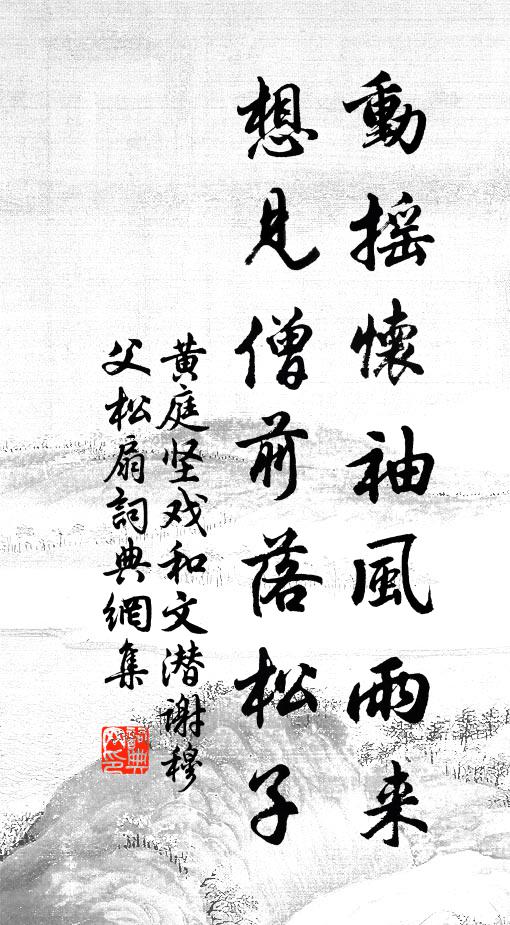 動摇懷袖風雨来
想見僧前落松子
黄庭坚戏和文潜谢穆
父松扇詞典網集